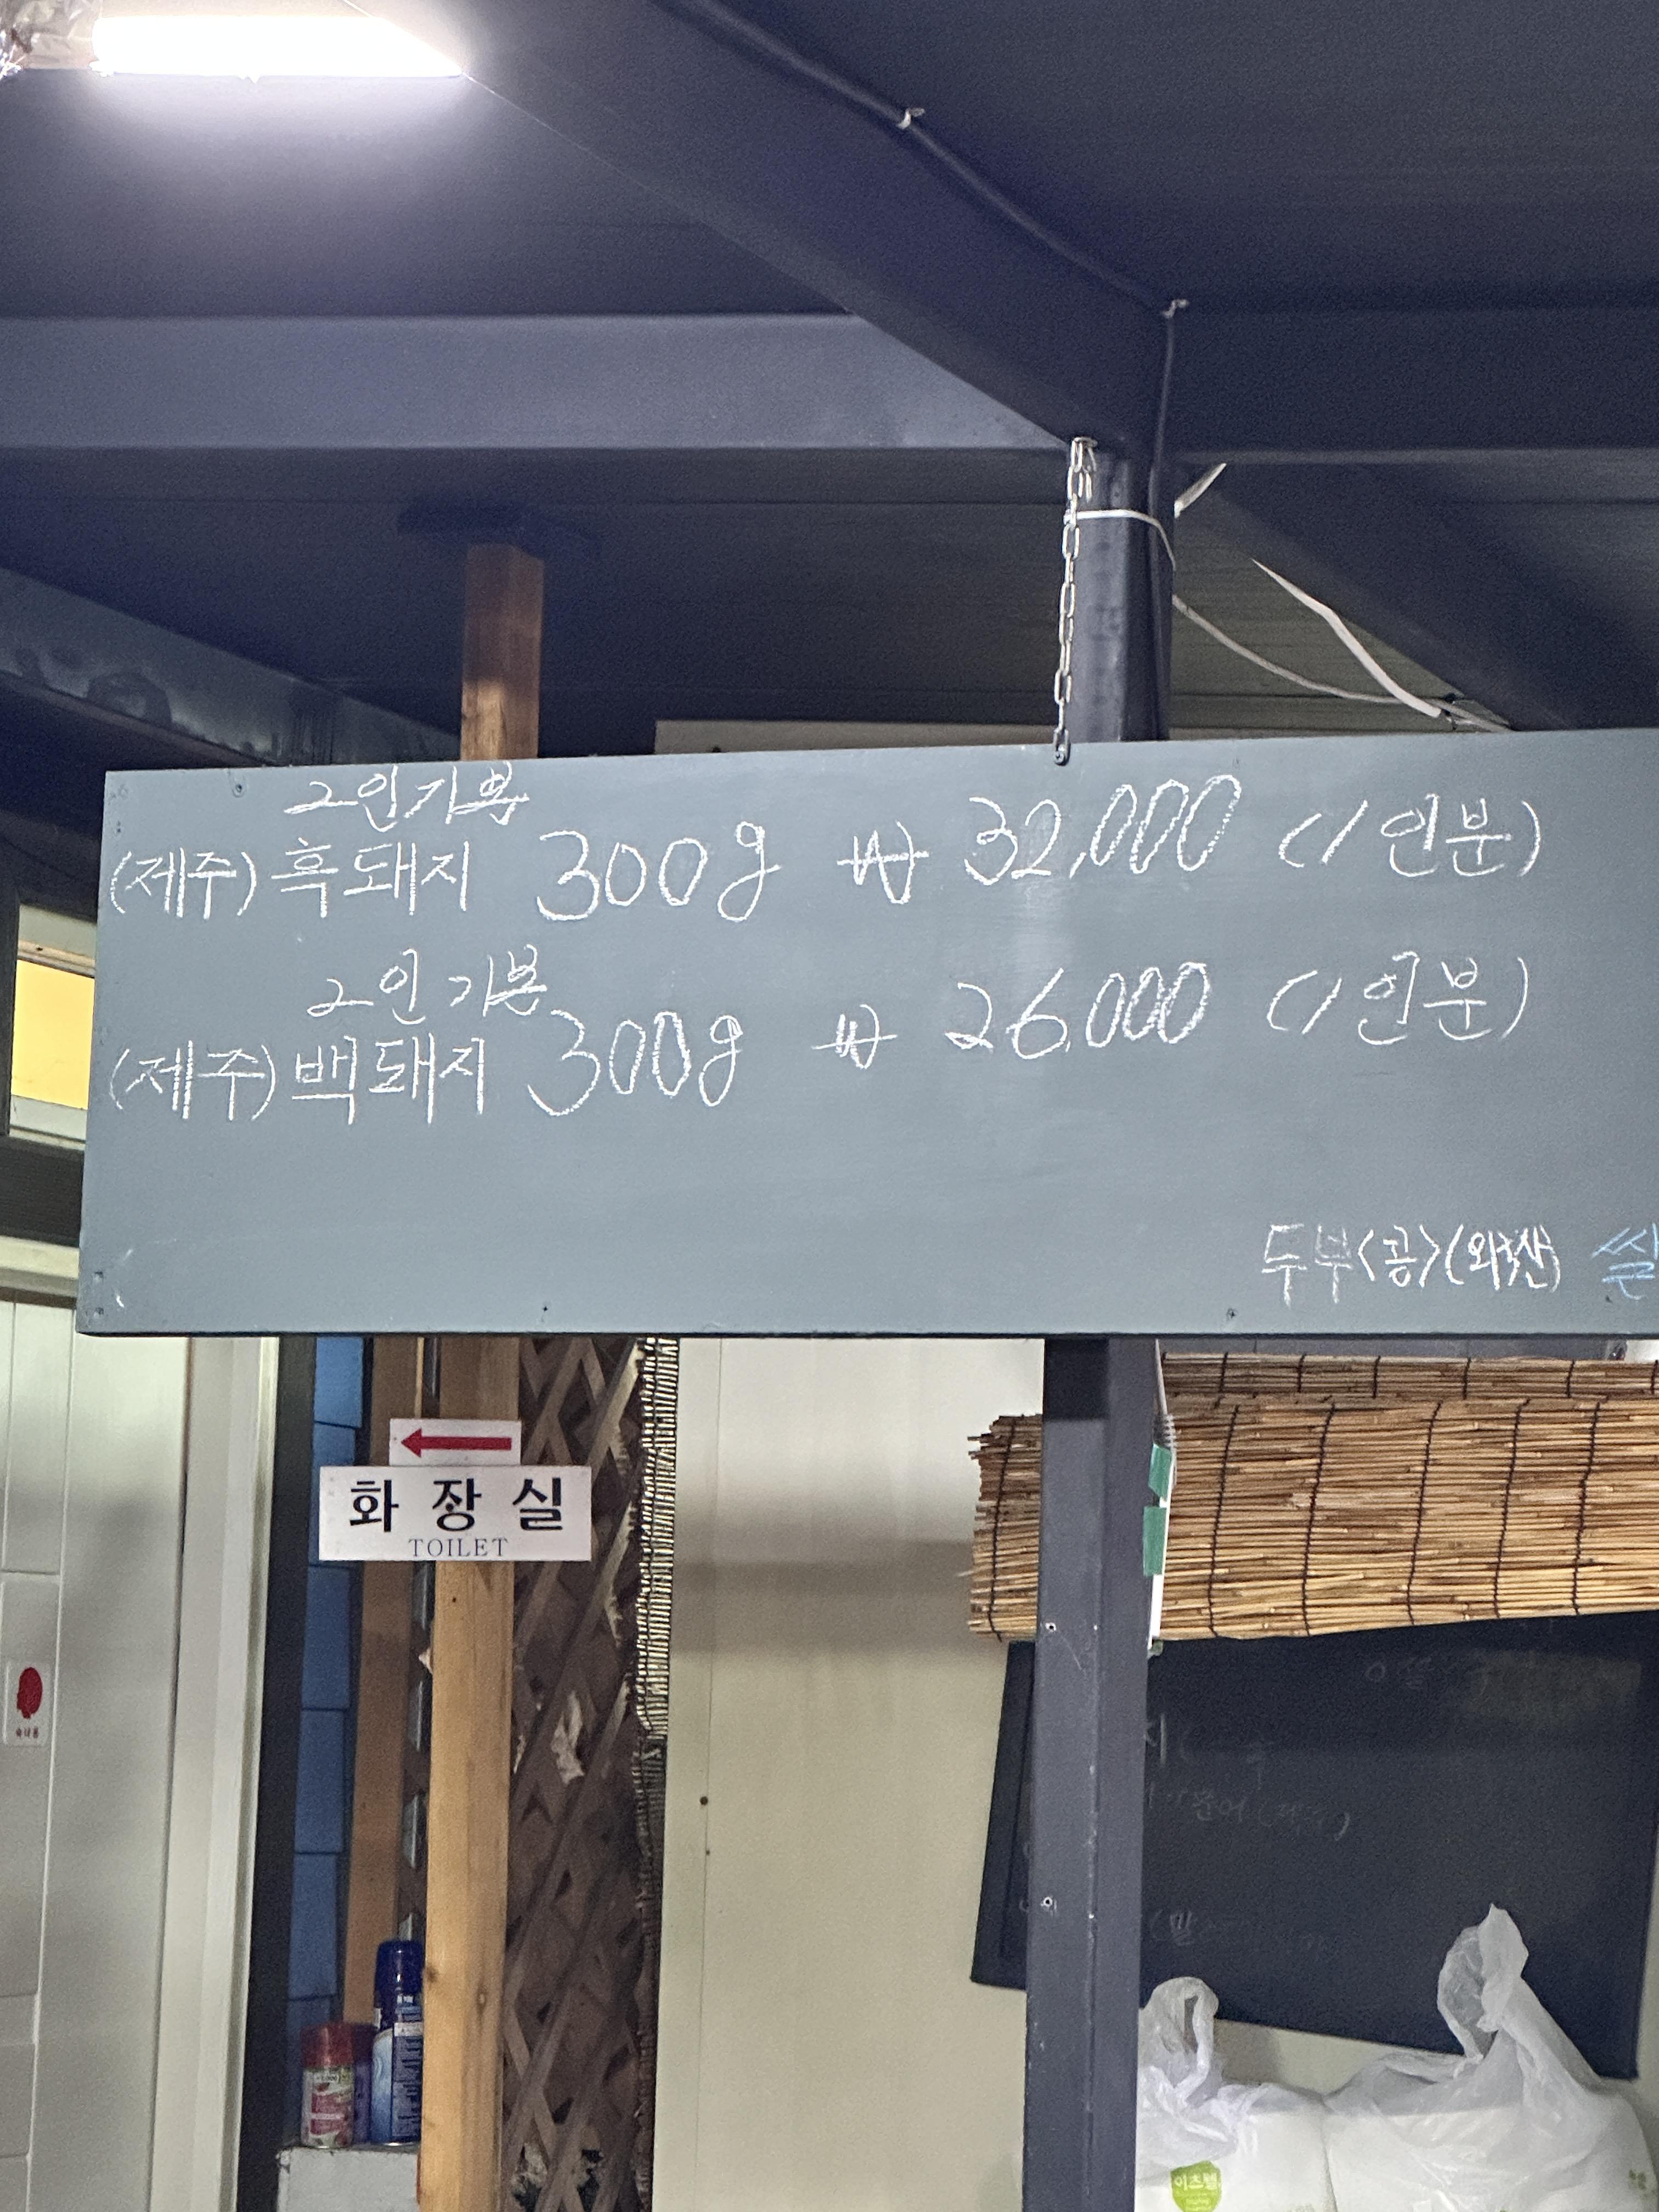 2인기본
(제주) 흑돼지 300g ₩ 32,000 (1인분)
2인기본
(제주) 백돼지 300g ₩ 26,000 (1인분)
두부<콩>(외국산) 쌀
화장실
TOILET
숙녀용
이츠웰